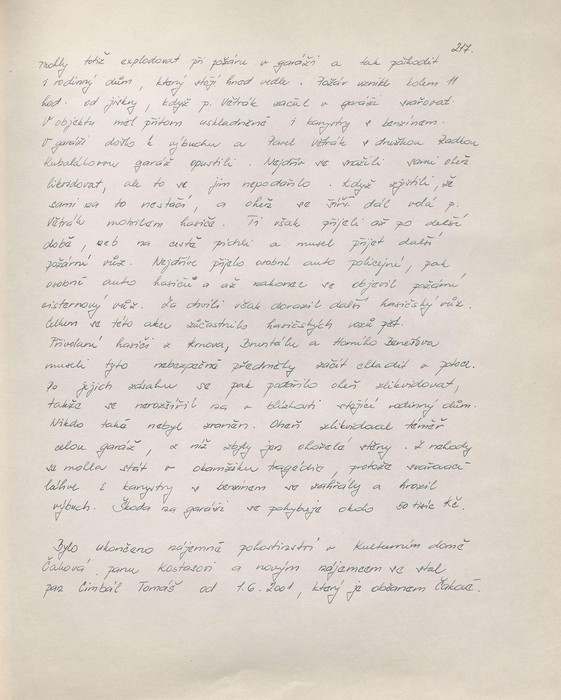 217.
mohly totiž explodovat při požáru v garáži a tak poškodit
i rodinný dům, který stojí hned vedle. Požár vznikl kolem 11
hod. od jiskry, když p. Větrák začal v garáži svařovat.
V objektu měl přitom uskladněné i kanystry s benzinem.
V garáži došlo k výbuchu a Pavel Větrák s družkou Radkou
Kubalákovou garáž opustili. Nejdřív se snažili sami oheň
likvidovat, ale to se jim nepodařilo. Když zjistili, že
sami na to nestačí, a oheň se šíří dál volá p.
Větrák mobilem hasiče. Ti však přijeli až po delší
době, neb na cestě píchli a musel přijet další
požární vůz. Nejdříve přijelo osobní auto policejní, pak
osobní auto hasičů a až nakonec se objevil požární
cisternový vůz. Za chvíli však dorazil další hasičský vůz.
Celkem se této akce zúčastnilo hasičských vozů pět.
Přivolaní hasiči z Krnova, Bruntálu a Horního Benešova
museli tyto nebezpečné předměty začít chladit v potoce.
Po jejich zásahu se pak podařilo oheň zlikvidovat,
takže se nerozšířil na v blízkosti stojící rodinný dům.
Nikdo také nebyl zraněn. Oheň zlikvidoval téměř
celou garáž, z níž zbyly jen ohořelé stěny. Z nehody
se mohla stát v okamžiku tragédie, protože svařovací
láhve i kanystry s benzinem se zahřály a hrozil
výbuch. Škoda na garáži se pohybuje okolo 50 tisíc Kč.
Bylo ukončeno nájemné pohostinství v Kulturním domě
Čaková panu Kostasovi a novým nájemcem se stal
pan Cimbál Tomáš od 1.6.2001, který je občanem Čakové.